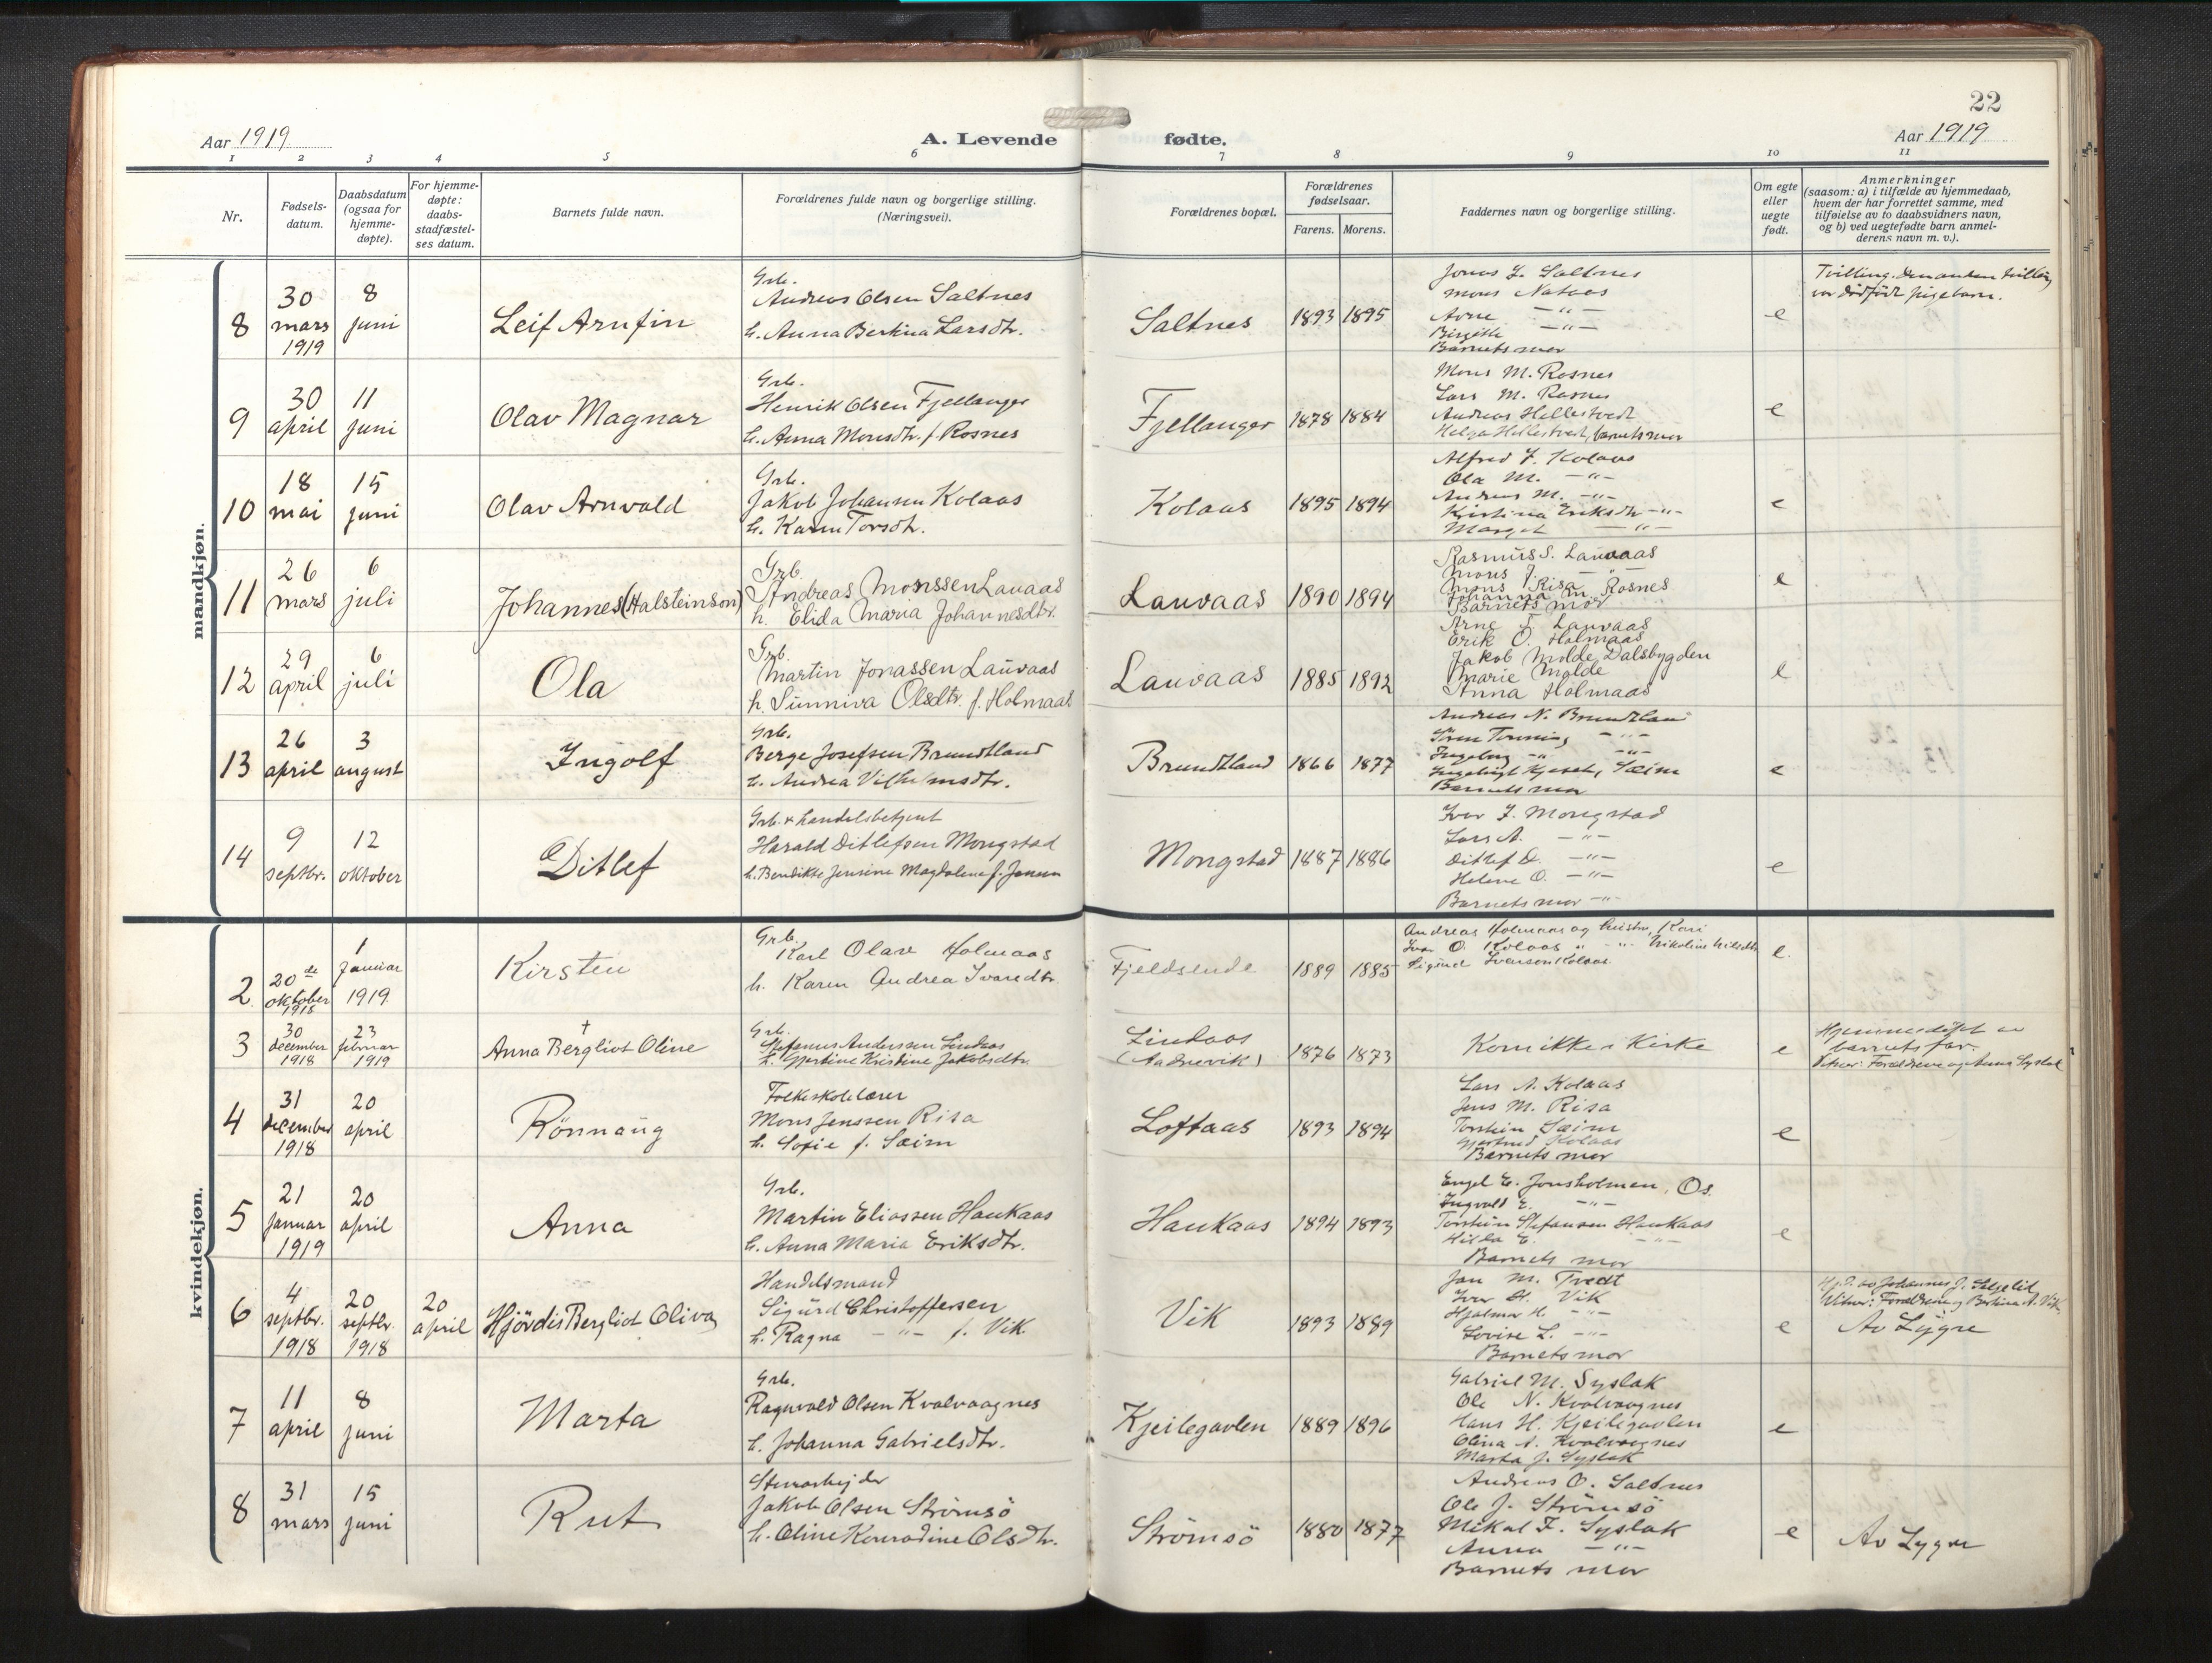 22
Aar 1919
A. Levende fødte.
Aar 1919
1 2 3 4 5 6 7 8 9 10 11
Nr.
Fødsels-
datum.
Daabsdatum
(ogsaa for
hjemme-
døpte).
For hjemme-
døpte:
daabs-
stadfæstel-
ses datum.
Barnets fulde navn.
Forældrenes fulde navn og borgerlige stilling.
(Næringsvei).
Forældrenes bopæl.
Forældrenes
fødselsaar.
Farens. Morens.
Faddernes navn og borgerlige stilling.
Om egte
eller
uegte
født.
Anmerkninger
(saasom: a) i tilfælde av hjemmedaab,
hvem der har forrettet samme, med
tilføielse av to daabsvidners navn,
og b) ved uegtefødte barn anmel-
derens navn m. v.).
mandkjøn.
8
30
mars
1919
8
juni
Leif Arnfin
Grb.
Andreas Olsen Saltnes
h. Anna Bertina Larsdtr.
Saltnes
1893 1895
Jonas L. Saltnes
Mons Nataas
Arne — " —
Birgitte — " —
Barnets mor
e
Tvilling. Den anden tvilling
var dødfødt pigebarn.
9
30
april
11
juni
Olav Magnar
Grb.
Henrik Olsen Fjellanger
h. Anna Monsdtr. f. Rosnes
Fjellanger
1878 1884
Mons M. Rosnes
Lars M. Rosnes
Andreas Hellestvedt
Helga Hellestvedt, barnets mor
e
10
18
mai
15
juni
Olav Arnvald
Grb.
Jakob Johansen Kolaas
h. Karen Torsdtr.
Kolaas
1895 1894
Alfred J. Kolaas
Ola M. — " —
Andreas M. — " —
Kristina Eriksdtr — " —
Marget — " —
e
11
26
mars
6
juli
Johannes (Halsteinson)
Grb.
Andreas Monssen Lauvaas
h. Elida Maria Johannesdtr.
Lauvaas
1890 1894
Rasmus S. Lauvaas
Mons J. — " —
Mons Risa
Johanna M. Rosnes
Barnets mor
e
12
29
april
6
juli
Ola
Grb.
Martin Jonassen Lauvaas
h. Sunniva Olsdtr. f. Holmaas
Lauvaas
1885 1892
Arne J. Lauvaas
Erik O. Holmaas
Jakob Molde, Dalsbygden
Marie Molde
Anna Holmaas
e
13
26
april
3
august
Ingolf
Grb.
Berge Josefsen Brundtland
h. Andrea Vilhelmsdtr.
Brundtland
1866 1877
Andreas N. Brundtland
Ingeborg — " —
Sæim
Barnets mor
e
14
9
septbr.
12
oktober
Ditlef
Grb. & handelsbetjent
Harald Ditlefsen Mongstad
h. Bendikte Jensine Magdalena f. Jensen
Mongstad
1887 1886
Iver J. Mongstad
Lars A. — " —
Ditlef D. — " —
Helene O. — " —
Barnets mor — " —
e
kvindekjøn.
2.
20de
oktober
1918
1
januar
1919
Kirsten
Grb.
Karl Olav Holmaas
h. Karen Andrea Ivarsdtr
Fjeldsende
1889 1885
Andreas Holmaas og hustru, Kari
Ivar O. Kolaas " — " — Nikoline Nilsdtr
Sigurd Iversen Kolaas
e.
3
30
december
1918
23
februar
1919
†
Anna Bergliot Oline
Grb.
Stefanus Anderssen Lindaas
h. Gjertine Kristine Jakobsdtr.
Lindaas
(Aadnevik)
1876 1873
Kom ikke i Kirke
e
Hjemmedøpt av
barnets far.
Vitner: Forældrene og Anna Syslak
4
31
december
1918
20
april
Rönnaug
Folkeskolelærer
Mons Jenssen Risa
h. Sofie f. Sæim
Loftaas
1893 1894
Lars A. Kolaas
Jens M. Risa
Torstein Sæim
Gjertrud Kolaas
Barnets mor
e
5
21
januar
1919
20
april
Anna
Grb.
Martin Eliassen Haukaas
h. Anna Maria Eriksdtr.
Haukaas
1894 1893
Engel E. Jonsholmen, Os.
Ingvald E. — " —
Torstein Stefansen Haukaas
Hilda E. — " —
Barnets mor
e
6
4
septbr.
1918
20
septbr.
1918
20
april
Hjördis Bergliot Oliva
Handelsmand
Sigurd Christoffersen
h. Ragna — " — f. Vik
Vik
1893 1889
Jan M. Tvedt
Iver H. Vik
Hjalmar H. — " —
Lovise L. — " —
Barnets mor
e
Hj.d. av Johannes J.
Vitner: Forældrene og Bertina A. Vik
Av Lygre
7
11
april
8
juni
Marta
Grb.
Ragnvald Olsen Kvalvaagnes
h. Johanna Gabrielsdtr.
Kjeilegavlen
1889 1896
Gabriel M. Syslak
Ole N. Kvalvaagnes
Hans H. Kjeilegavlen
Olina A. Kvalvaagnes
Marta J. Syslak
e
8
31
mars
15
juni
Rut
Stenarbejder
Jakob Olsen Strömsö
h. Oline Konradine Olsdtr.
Strömsö
1880 1877
Andreas O. Saltnes
Ole J. Strömsö
Mikal F. Syslak
Anna — " —
Barnets mor
e
Av Lygre